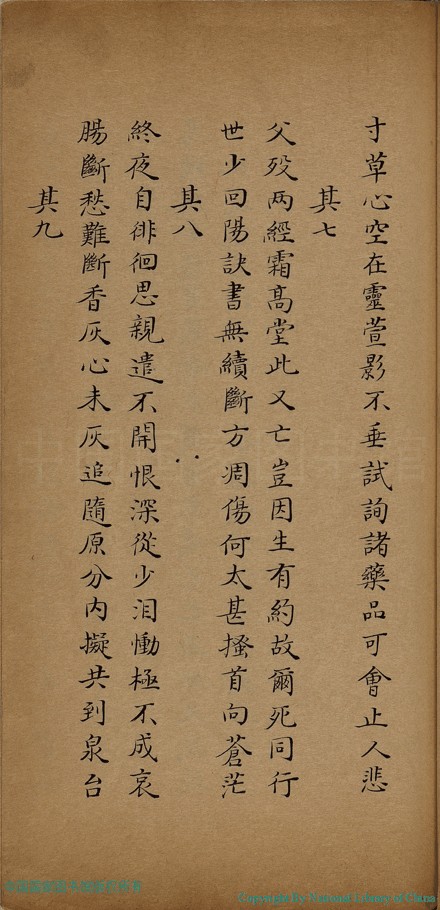 寸草心空在靈萱影不垂試詢諸藥品可會止人悲
其七
父歿两經霜高堂此又亡豈因生有約故爾死同行
世少回陽訣書無續斷方凋傷何太甚搔首向蒼茫
其八
終夜自徘徊思親遣不開恨深從少泪慟極不成哀
腸斷愁難斷香灰心未灰追隨原分内擬共到泉台
其九
Copyright By National Library of China